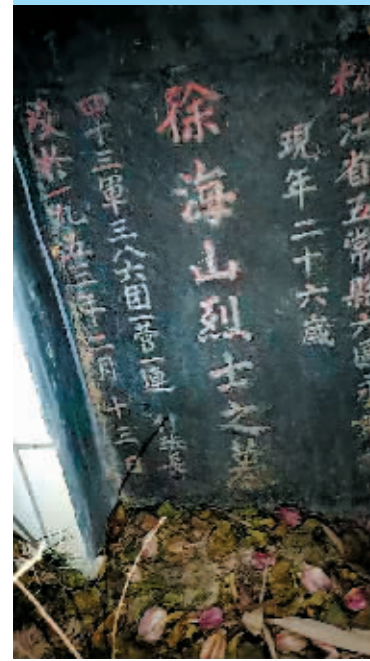 松江省五常縣六區
現年二十六歲
徐海山烈士之墓
四十三軍三八六团一营一連
歿於一九五三年二月十三日